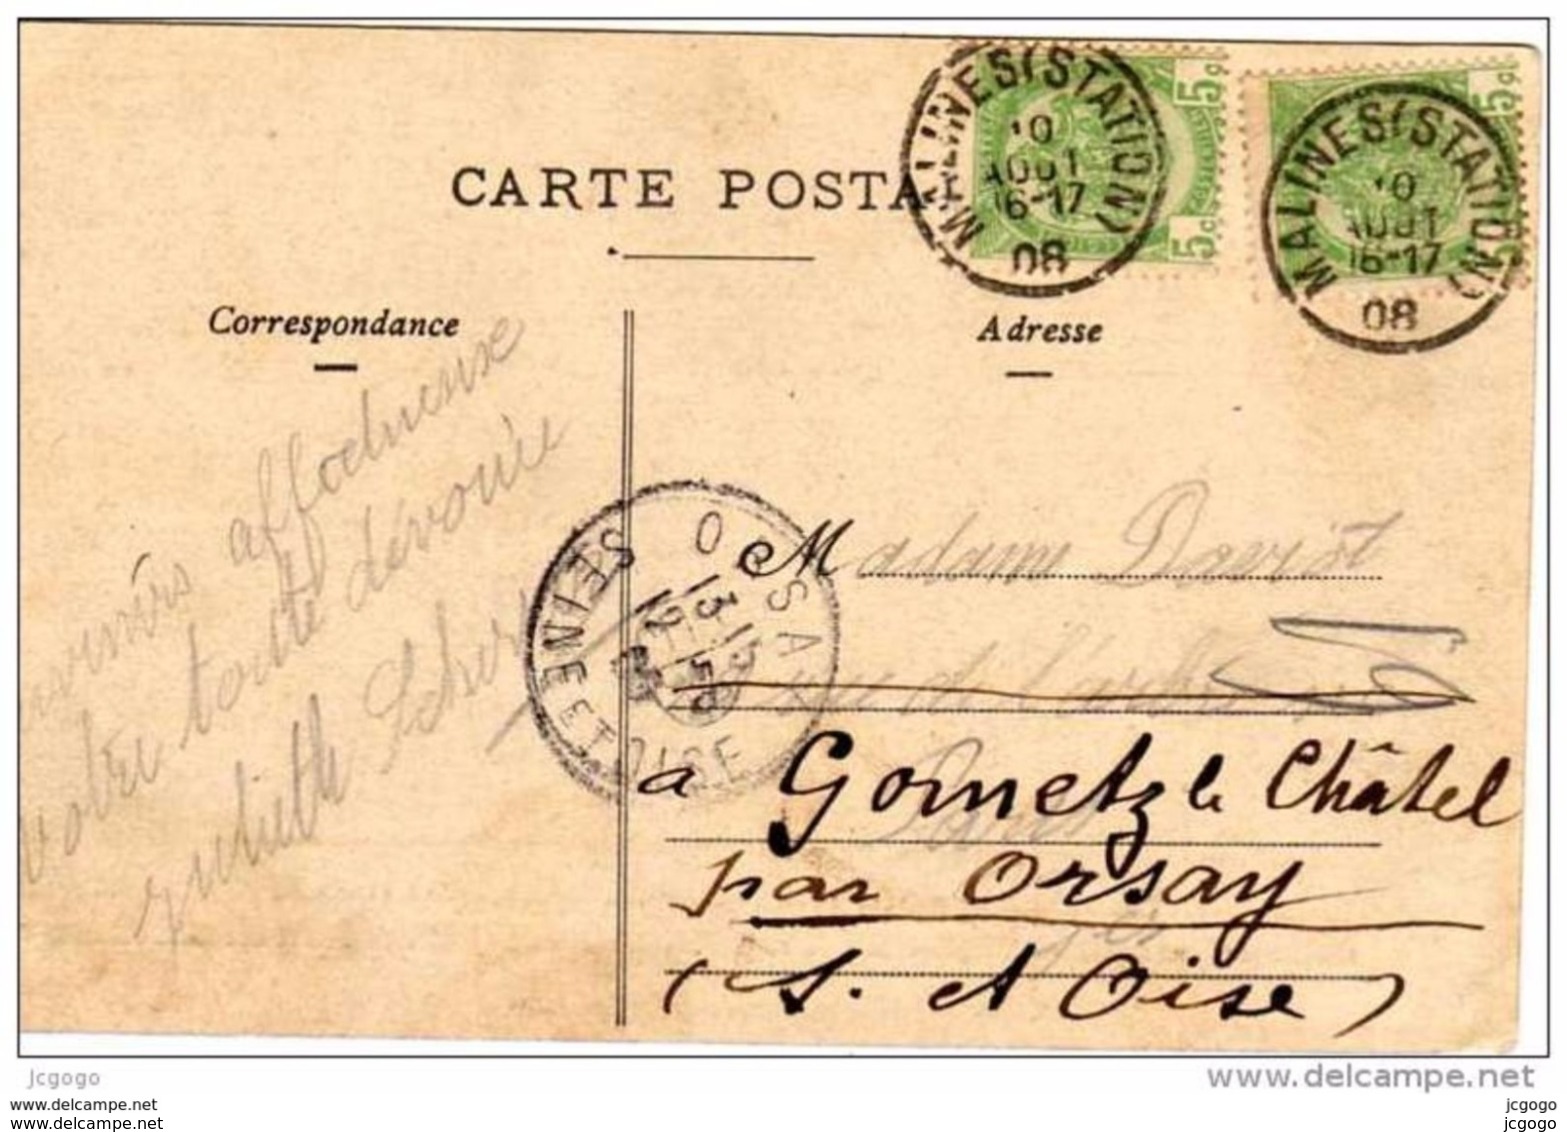 CARTE POSTA
Correspondance
Adresse
MALINES (STATION)
10
AOUT
16-17
08
5c
5c
MALINES (STATION)
10
AOUT
16-17
08
5c
affectueuse
votre toute dévouée
ORSAY
SEINE ET OISE
Madame
à Gometz le Châtel
par Orsay
(S. et Oise)
jcgogo
www.delcampe.net
jcgogo
www.delcampe.net
jcgogo
www.delcampe.net
jcgogo
jcgogo